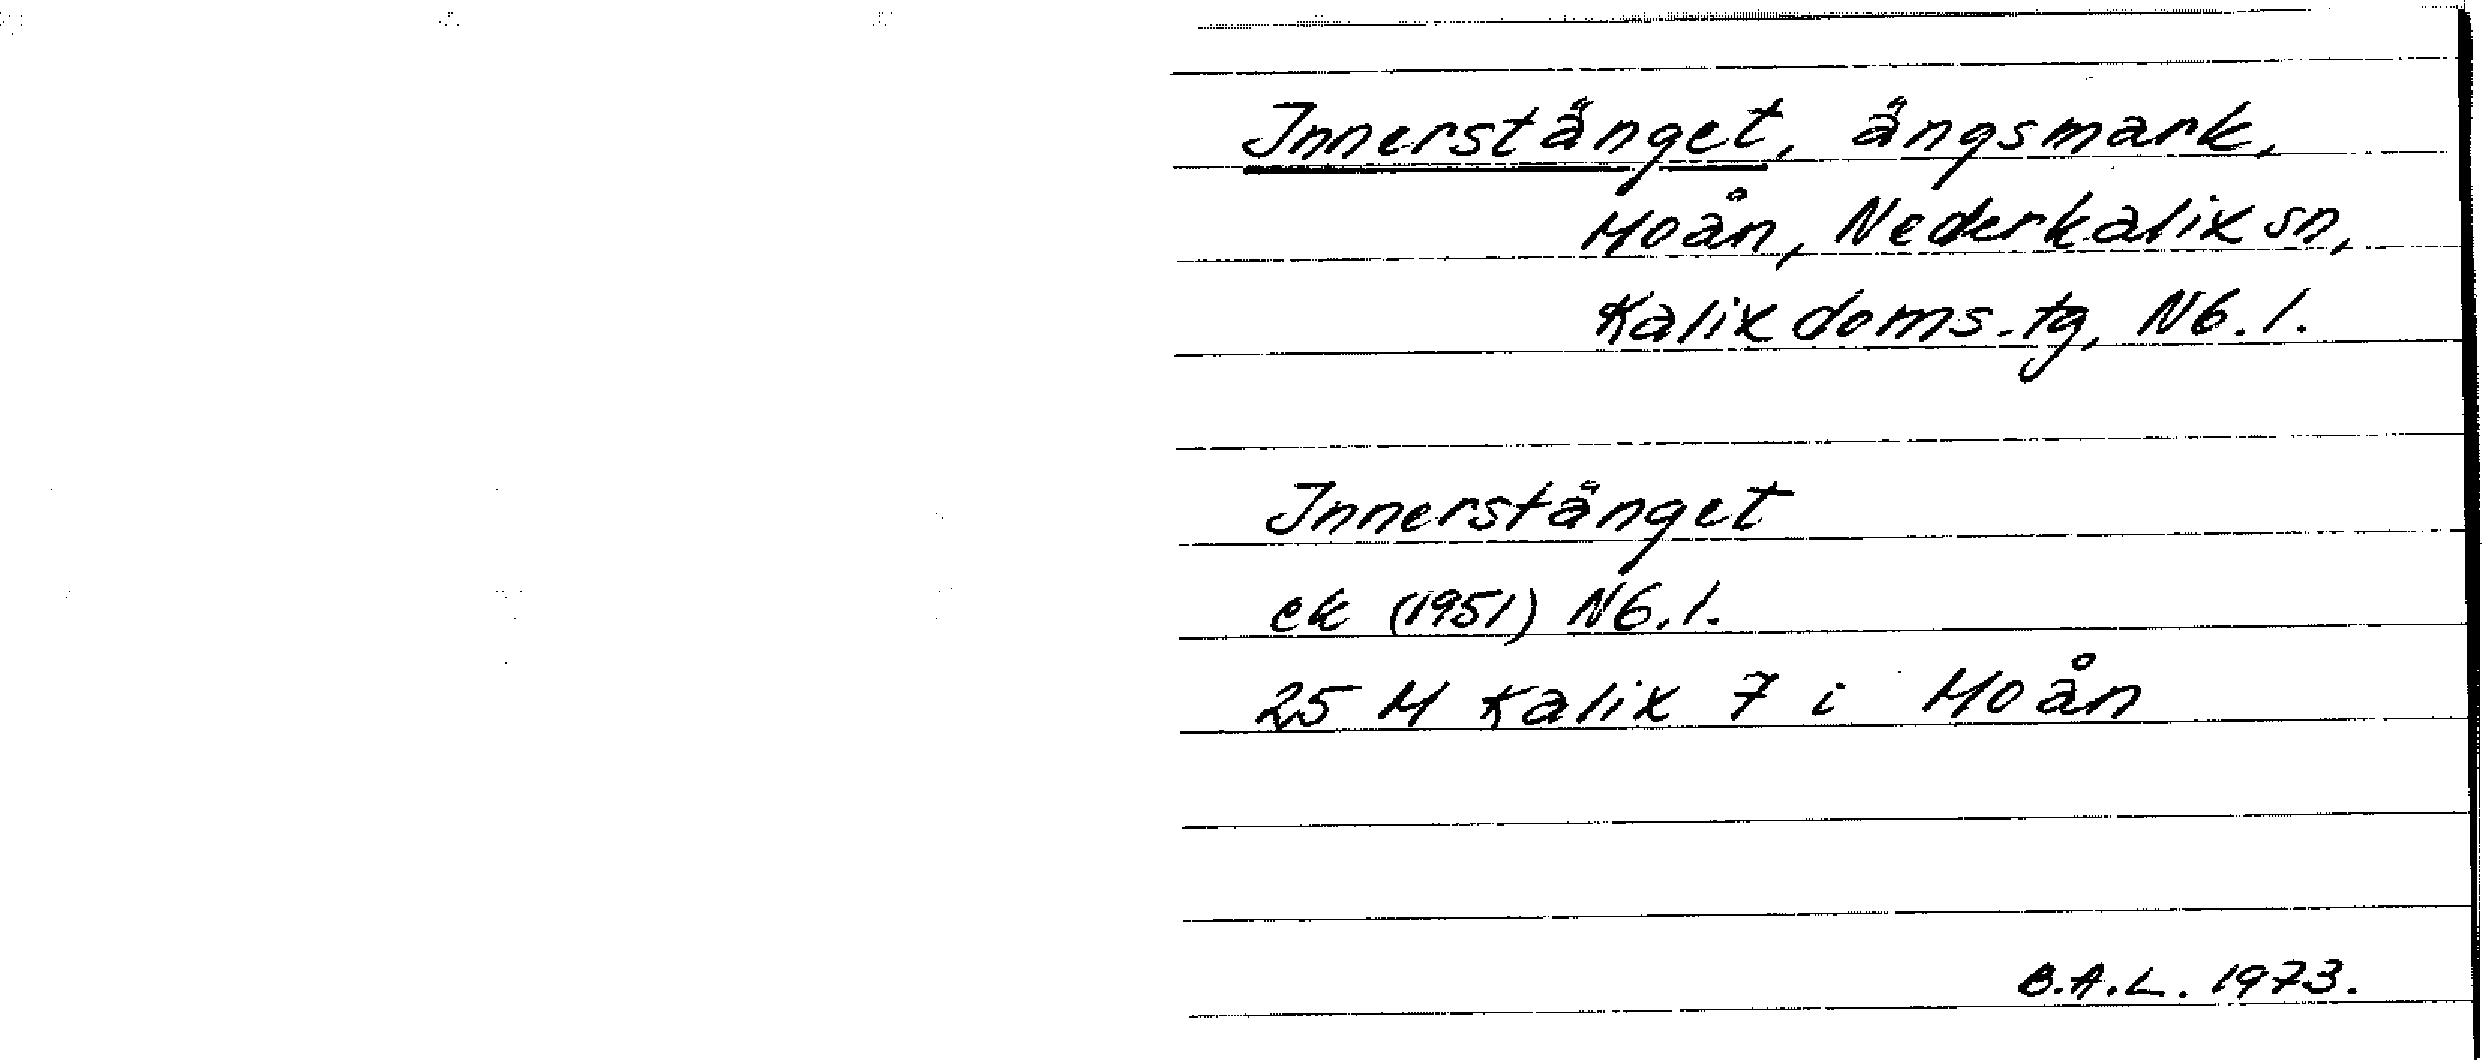 Innerstänget, ängsmark,
Moån, Nederkalix sn,
Kalix doms.tg, Nb.l.
Innerstänget
ek (1951) Nb.l.
25 M Kalix 7 i Moån
B.A.L. 1973.